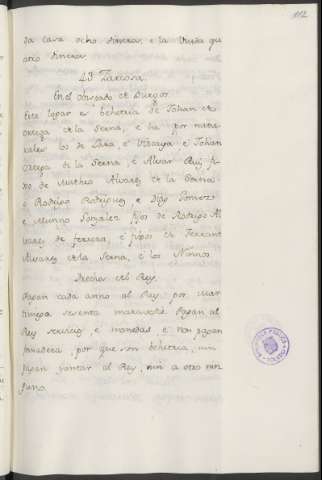 112
da casa ocho dineros, e la Viuda qua
otro dineros.
43 Zarcosa.
En el obispado de Burgos
Este logar es behetria de Johan de
Ortega de la Serna, e ha por natu
rales los de Lara, e Vizcaya e Johan
Ortega de la Serna, e Alvar Ruiz, fi
xo de Matheo Alvarez de la
e Rodrigo Rodriguez, e Diego Gomez
e Munnio Gonzalez fijos de Rodrigo Al
varez de Ferrera, e fijos de Ferrant
Alvarez de la Serna, e los Nunnos.
Derechos del Rey.
Pagan cada anno al Rey por mar
tiniega sesenta maravedis. Pagan al
Rey servicios e monedas, e non pagan
fonsadera, por que son behetria, nin
pagan yantar al Rey, nin a otro nin
guno.